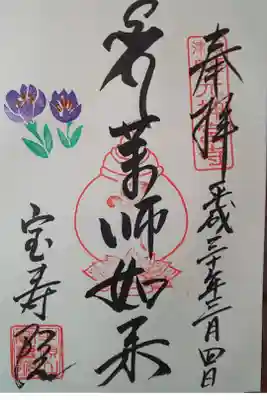 奉拝
平成三十年三月四日
薬师如来
宝寿院